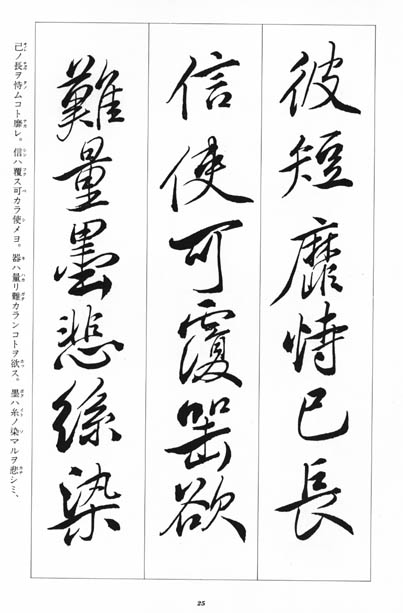 彼短靡恃己長
信使可覆器欲
難量墨悲絲染
己ノ長ヲ恃ムコト靡レ。信ハ覆ス可カラ使メヨ。器ハ量リ難カランコトヲ欲ス。墨ハ糸ノ染マルヲ悲シミ、
25